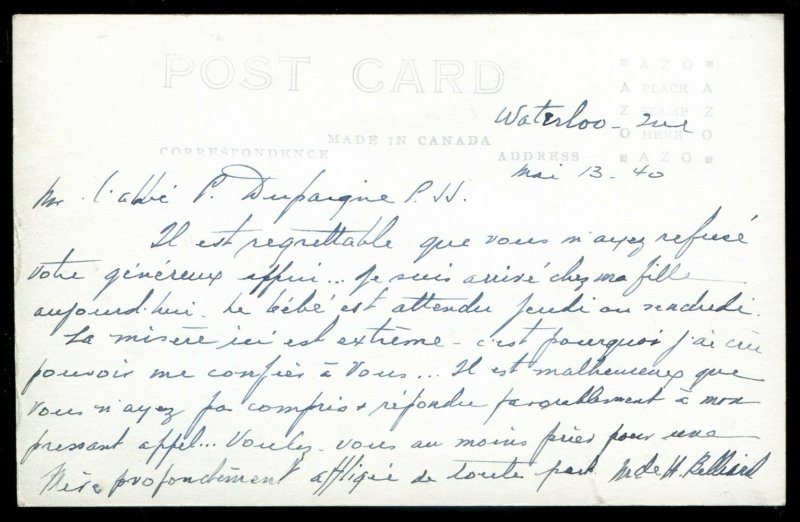 POST CARD
AZO
A PLACE A
Z STAMP Z
O HERE O
AZO
MADE IN CANADA
CORRESPONDENCE
ADDRESS
Waterloo - Que
Mai 13 - 40
Mr l'abbé P. Dupaigne P.SS.
Il est regrettable que vous n'ayez refusé
votre généreux appui... Je suis arrivé chez ma fille
aujourd'hui. Le bébé est attendu jeudi ou vendredi.
La misère ici est extrême - c'est pourquoi j'ai cru
pouvoir me confier à Vous... Il est malheureux que
vous n'ayez pas compris & répondu favorablement à mon
pressant appel... Voulez-vous au moins prier pour une
Mère profondément affligée de toute part. Mde H. Belliard